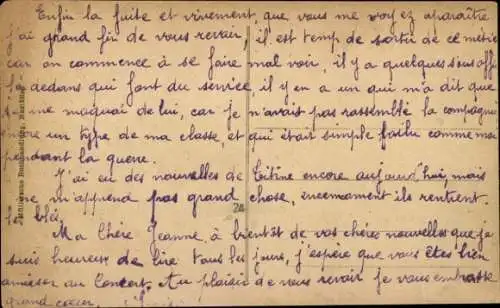 Enfin la fuite et vivement, que vous me voyez aparaître
j'ai grand fin de vous revoir, il est temps de sortir de ce métier
car on commence à se faire mal voir, il y a quelques sous offi
la dedans qui font du service, il y en a un qui m'a dit que
je me moquai de lui, car je n'avais pas rassemblé la compagnie
encore un type de ma classe, et qui était simple poilu comme moi
pendant la guerre.
J'ai eu des nouvelles de Titine encore aujourd'hui, mais
ne m'apprend pas grand chose, ils rentrent
les blés,
Ma Chère Jeanne, à bientôt de vos chères nouvelles que je
suis heureux de lire tous les jours, j'espère que vous êtes bien
amuser au Concert. Au plaisir de vous revoir je vous embrasse
grand cœur,
28